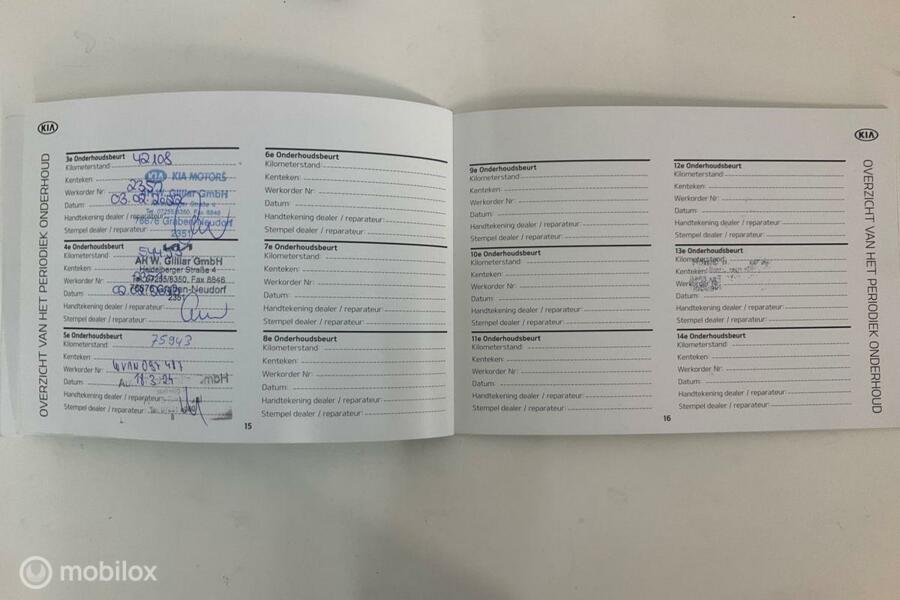 KIA
OVERZICHT VAN HET PERIODIEK ONDERHOUD
3e Onderhoudsbeurt
Kilometerstand: 42108
Kenteken:
KIA KIA MOTORS
Werkorder Nr: 2351
AH W. Gillar GmbH
Datum: 03.02.2022
Tel. 07255/6350, Fax 8846
Handtekening dealer / reparateur:
76676 Graben-Neudorf
Stempel dealer / reparateur:
2351
4e Onderhoudsbeurt
Kilometerstand:
AH W. Gillar GmbH
Kenteken:
Heidelberger Straße 4
Werkorder Nr:
Tel. 07255/6350, Fax 8846
Datum:
76676 Graben-Neudorf
2351
Handtekening dealer / reparateur:
Stempel dealer / reparateur:
5e Onderhoudsbeurt
Kilometerstand: 75943
Kenteken:
Werkorder Nr:
Datum: 18.3.24
Handtekening dealer / reparateur:
Stempel dealer / reparateur:
6e Onderhoudsbeurt
Kilometerstand:
Kenteken:
Werkorder Nr:
Datum:
Handtekening dealer / reparateur:
Stempel dealer / reparateur:
7e Onderhoudsbeurt
Kilometerstand:
Kenteken:
Werkorder Nr:
Datum:
Handtekening dealer / reparateur:
Stempel dealer / reparateur:
8e Onderhoudsbeurt
Kilometerstand:
Kenteken:
Werkorder Nr:
Datum:
Handtekening dealer / reparateur:
Stempel dealer / reparateur:
15
9e Onderhoudsbeurt
Kilometerstand:
Kenteken:
Werkorder Nr:
Datum:
Handtekening dealer / reparateur:
Stempel dealer / reparateur:
10e Onderhoudsbeurt
Kilometerstand:
Kenteken:
Werkorder Nr:
Datum:
Handtekening dealer / reparateur:
Stempel dealer / reparateur:
11e Onderhoudsbeurt
Kilometerstand:
Kenteken:
Werkorder Nr:
Datum:
Handtekening dealer / reparateur:
Stempel dealer / reparateur:
12e Onderhoudsbeurt
Kilometerstand:
Kenteken:
Werkorder Nr:
Datum:
Handtekening dealer / reparateur:
Stempel dealer / reparateur:
13e Onderhoudsbeurt
Kilometerstand:
Kenteken:
Werkorder Nr:
Datum:
Handtekening dealer / reparateur:
Stempel dealer / reparateur:
14e Onderhoudsbeurt
Kilometerstand:
Kenteken:
Werkorder Nr:
Datum:
Handtekening dealer / reparateur:
Stempel dealer / reparateur:
16
KIA
OVERZICHT VAN HET PERIODIEK ONDERHOUD
mobilox